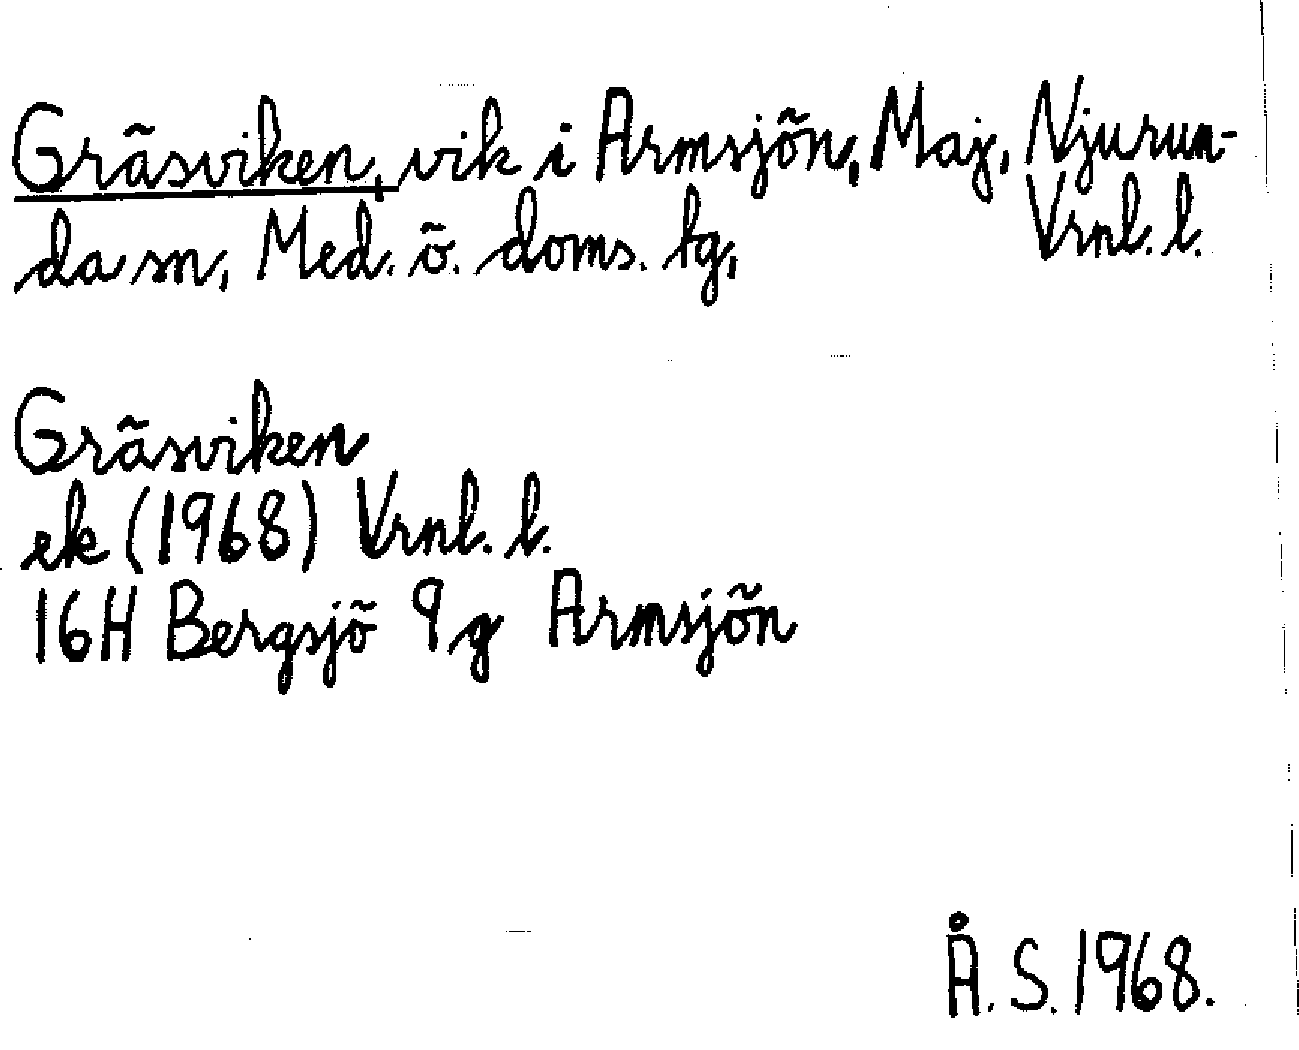 Gräsviken, vik i Armsjön, Maj, Njurun-
da sn, Med. ö. doms. tg, Vrnl. l.
Gräsviken
ek (1968) Vrnl. l.
16H Bergsjö 9g Armsjön
Å. S. 1968.